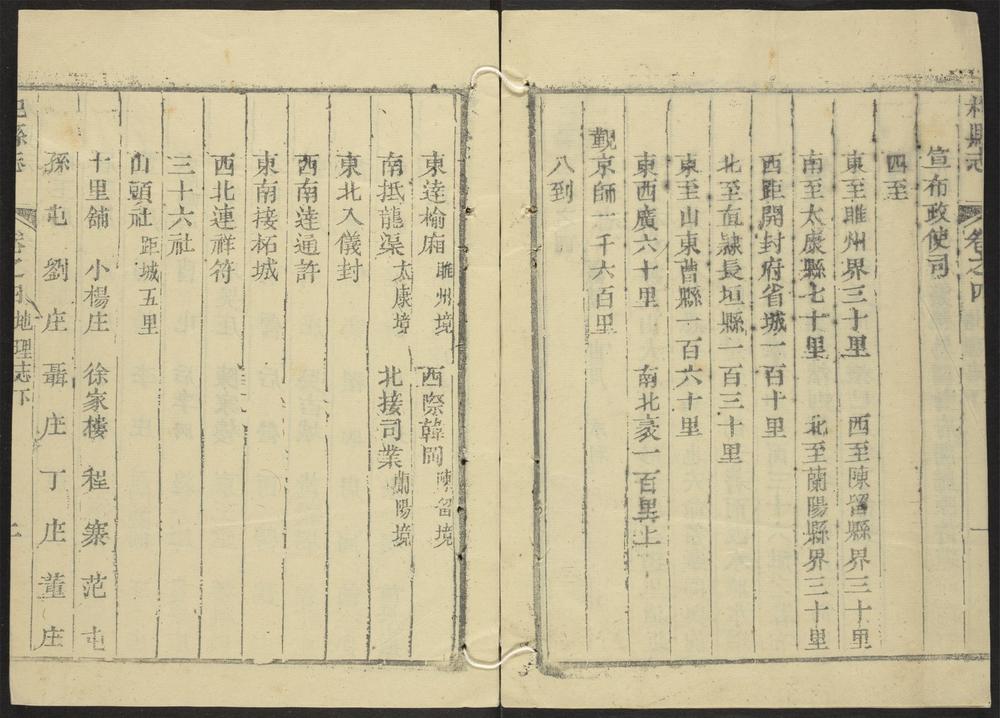 杞縣志
卷之四
宣布政使司
四至
東至睢州界三十里 西至陳留縣界三十里
南至太康縣七十里 北至蘭陽縣界三十里
西距開封府省城一百十里
北至直隸長垣縣一百三十里
東至山東曹縣一百六十里
東西廣六十里 南北袤一百里
覲京師一千六百里
八到
東達榆廂 睢州境 西際韓岡 陳留境
南抵龍渠 太康境 北接司業 蘭陽境
東北入儀封
西南達通許
東南接柘城
西北連祥符
三十六社
山頭社 距城五里
十里舖 小楊庄 徐家樓 程寨 范屯
孫屯 劉庄 聶庄 丁庄 董庄
杞縣志
卷之四 地理志下 二